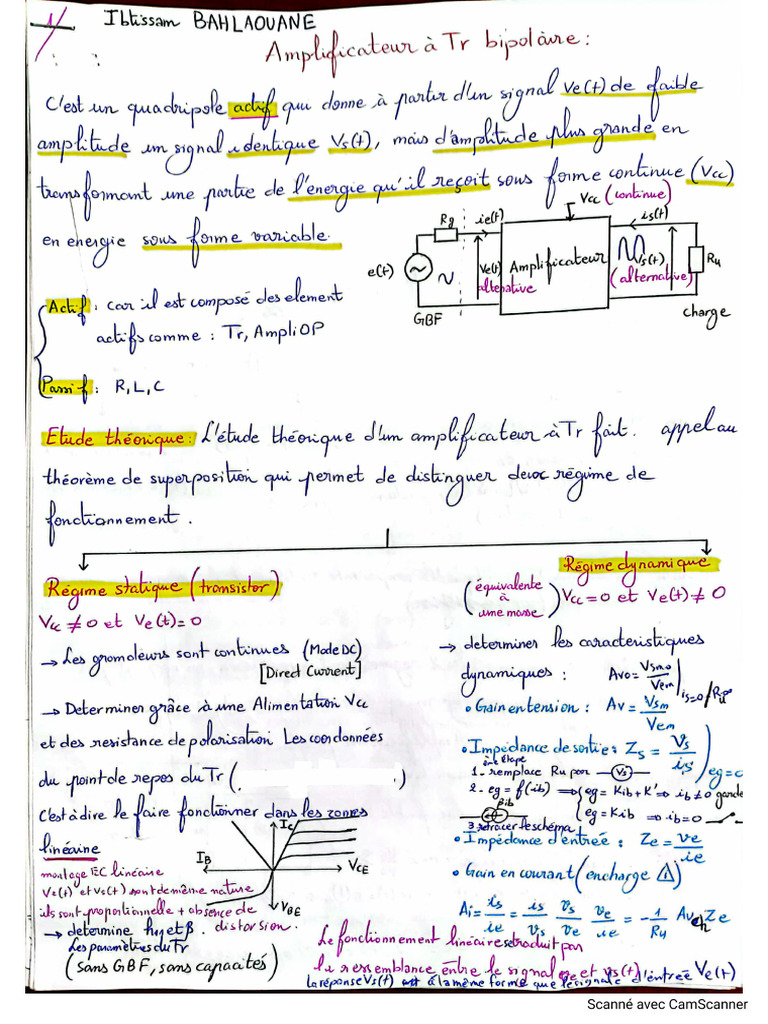 Ibtissam BAHLAOUANE
Amplificateur à Tr bipolaire :
C'est un quadripole actif qui donne à partir d'un signal Ve(t) de faible
amplitude un signal identique Vs(t), mais d'amplitude plus grande en
transformant une partie de l'énergie qu'il reçoit sous forme continue (Vcc)
en energie sous forme variable.
Vcc (continue)
Rg ie(t) is(t)
e(t) Ve(t) Amplificateur Vs(t) Ru
altenative (alternative)
GBF charge
Actif : car il est composé des element
actifs comme : Tr, Ampli OP
Passif : R, L, C
Etude théorique : L'étude théorique d'un amplificateur à Tr fait appel au
théorème de superposition qui permet de distinguer deux régime de
fonctionnement.
Régime statique (transistor)
Vcc ≠ 0 et Ve(t) = 0
→ Les grandeurs sont continues (Mode DC)
[Direct Current]
→ Determiner grâce à une Alimentation Vcc
et des resistance de polarisation Les coordonnées
du point de repos du Tr ( )
C'est à dire le faire fonctionner dans les zones
linéaire
IC
IB VCE
VBE
montage EC linéaire
Ve(t) et Vs(t) sont de même nature
ils sont proportionnelle + absence de
distorsion.
→ determine h11 et β
Les paramètres du Tr
(sans GBF, sans capacités)
Régime dynamique
(équivalente à une masse) Vcc = 0 et Ve(t) ≠ 0
→ determiner les caracteristiques
dynamiques : Avo = Vsmo / Vem | is=0 / Ru∞
• Gain en tension : Av = Vsm / Vem
• Impédance de sortie : Zs = Vs / is ) eg=0
1 - remplace Ru par Vs
2 - eg = f(ib) ⇒ { eg = Kib + K' ⇒ ib ≠ 0 garde
eg = Kib ⇒ ib = 0
βib
3 retracer le schéma
• Impédance d'entrée : Ze = ve / ie
• Gain en courant (en charge ⚠)
Ai = is / ie = is / vs vs / ve ve / ie = - 1 / Ru Avch Ze
Le fonctionnement linéaire se traduit par
la ressemblance entre le signal ve et vs(t).
la réponse Vs(t) est à la même forme que le signale d'entrée Ve(t)
Scanné avec CamScanner